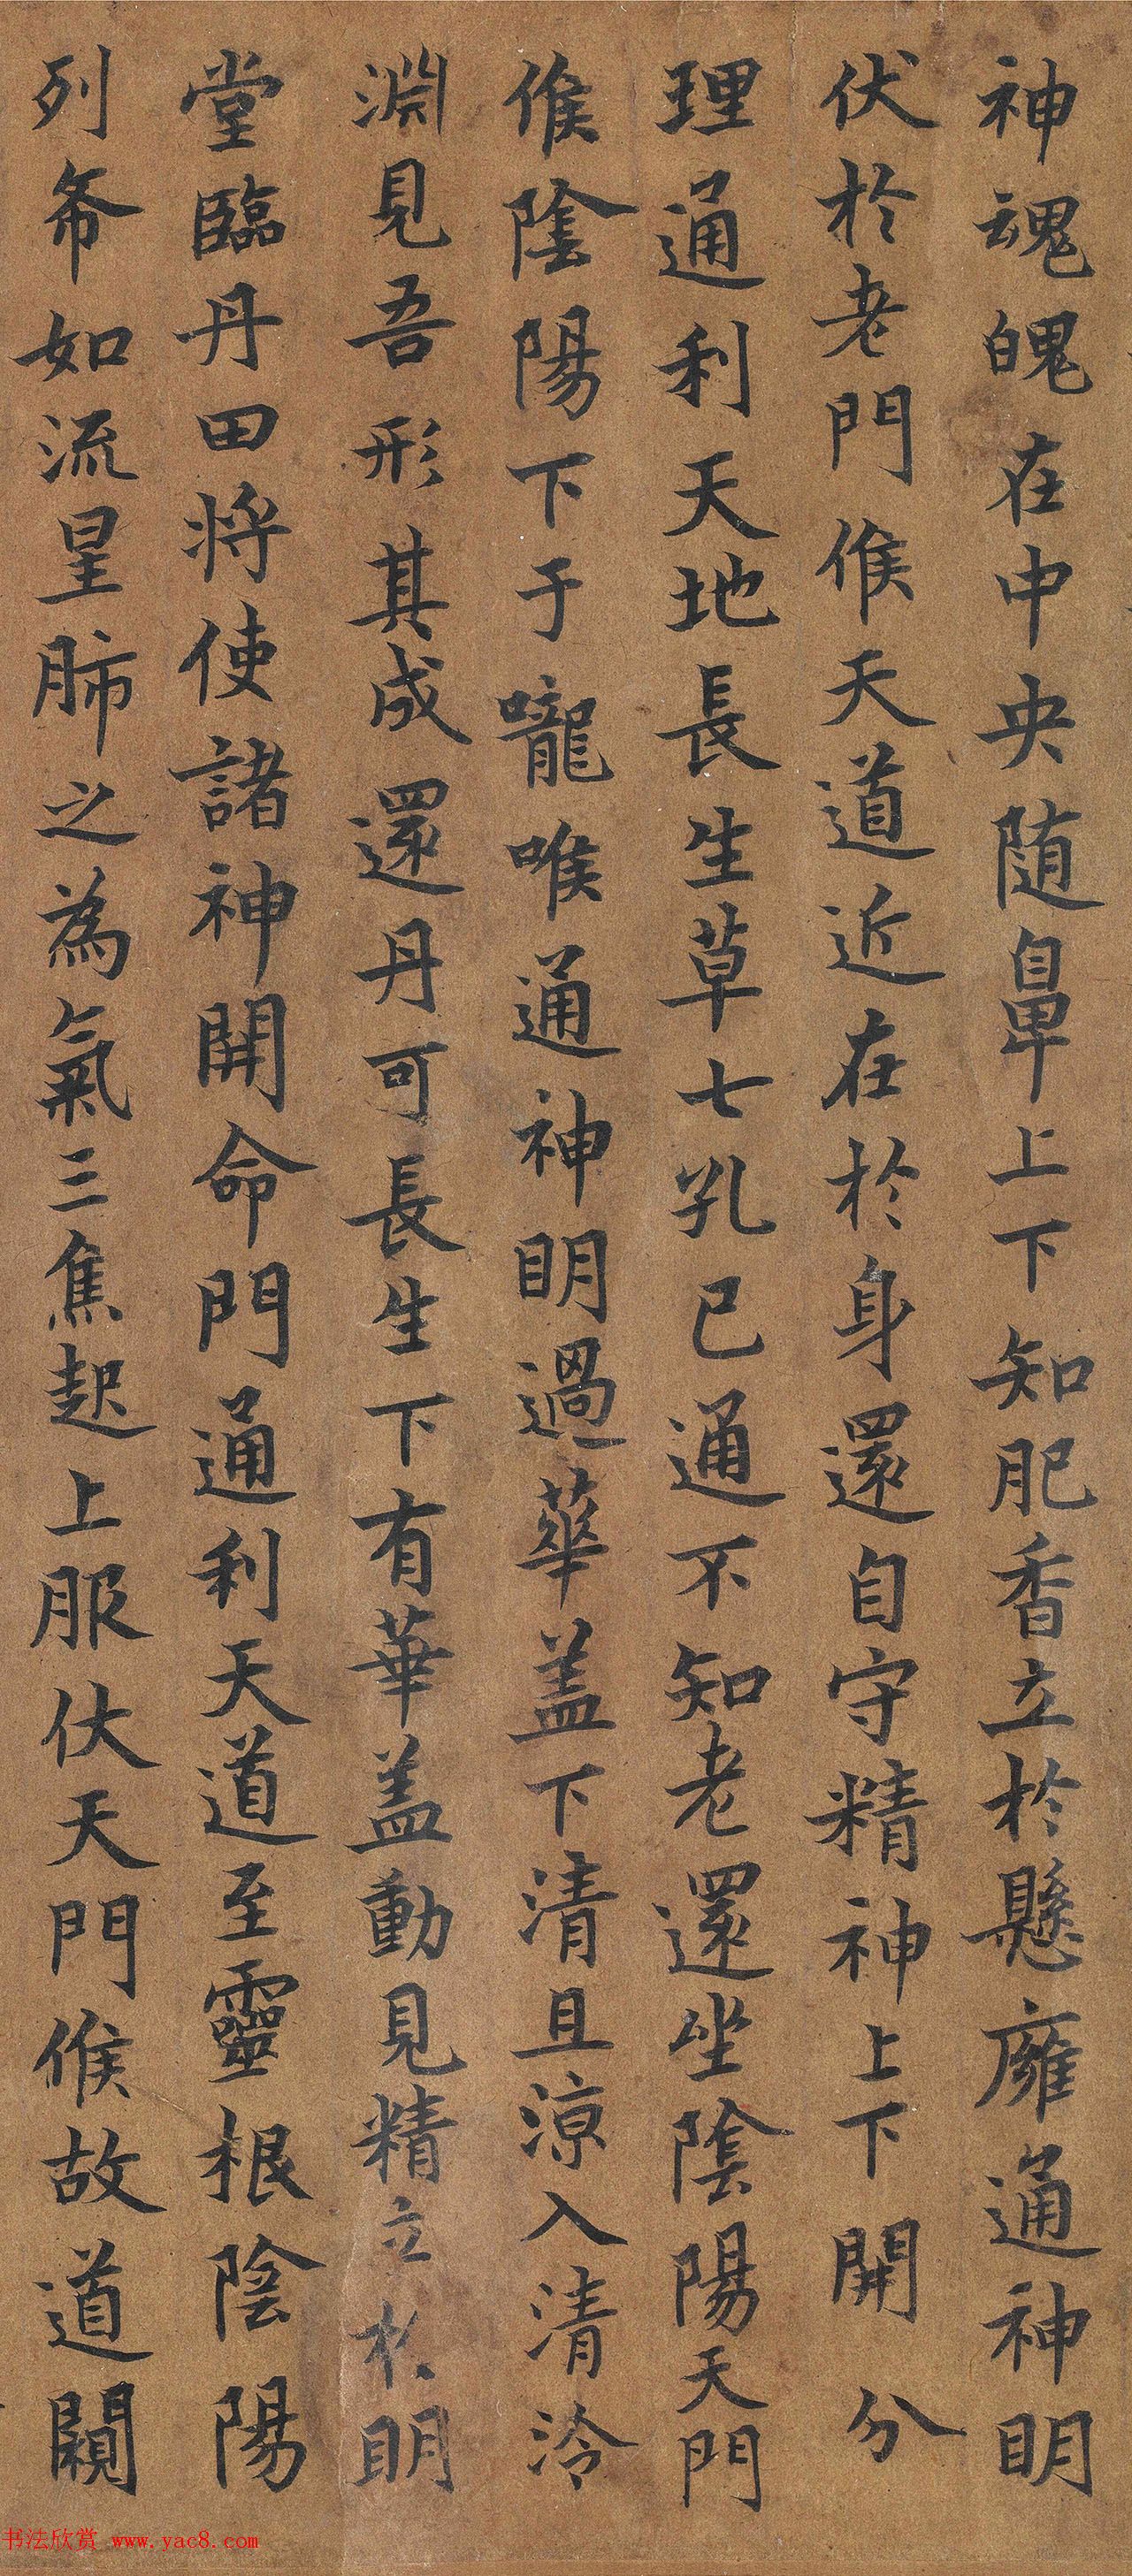 神魂魄在中央随鼻上下知肥香立於懸廱通神明
伏於老門候天道近在於身還自守精神上下開分
理通利天地長生草七孔已通不知老還坐陰陽天門
候陰陽下于嚨喉通神明過華盖下清且涼入清泠
淵見吾形其成還丹可長生下有華盖動見精立於明
堂臨丹田将使諸神開命門通利天道至靈根陰陽
列布如流星肺之為氣三焦起上服伏天門候故道闚
书法欣赏 www.yac8.com